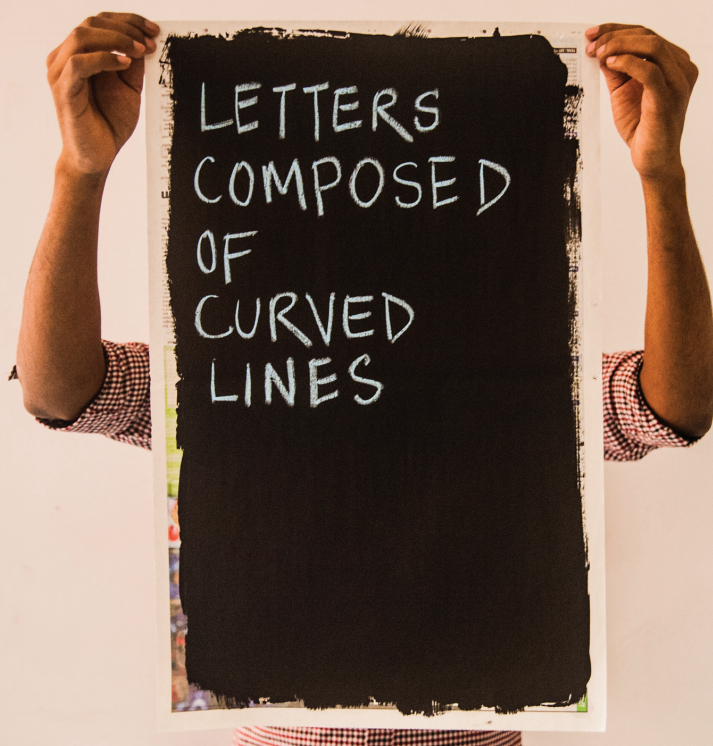 LETTERS
COMPOSED
OF
CURVED
LINES